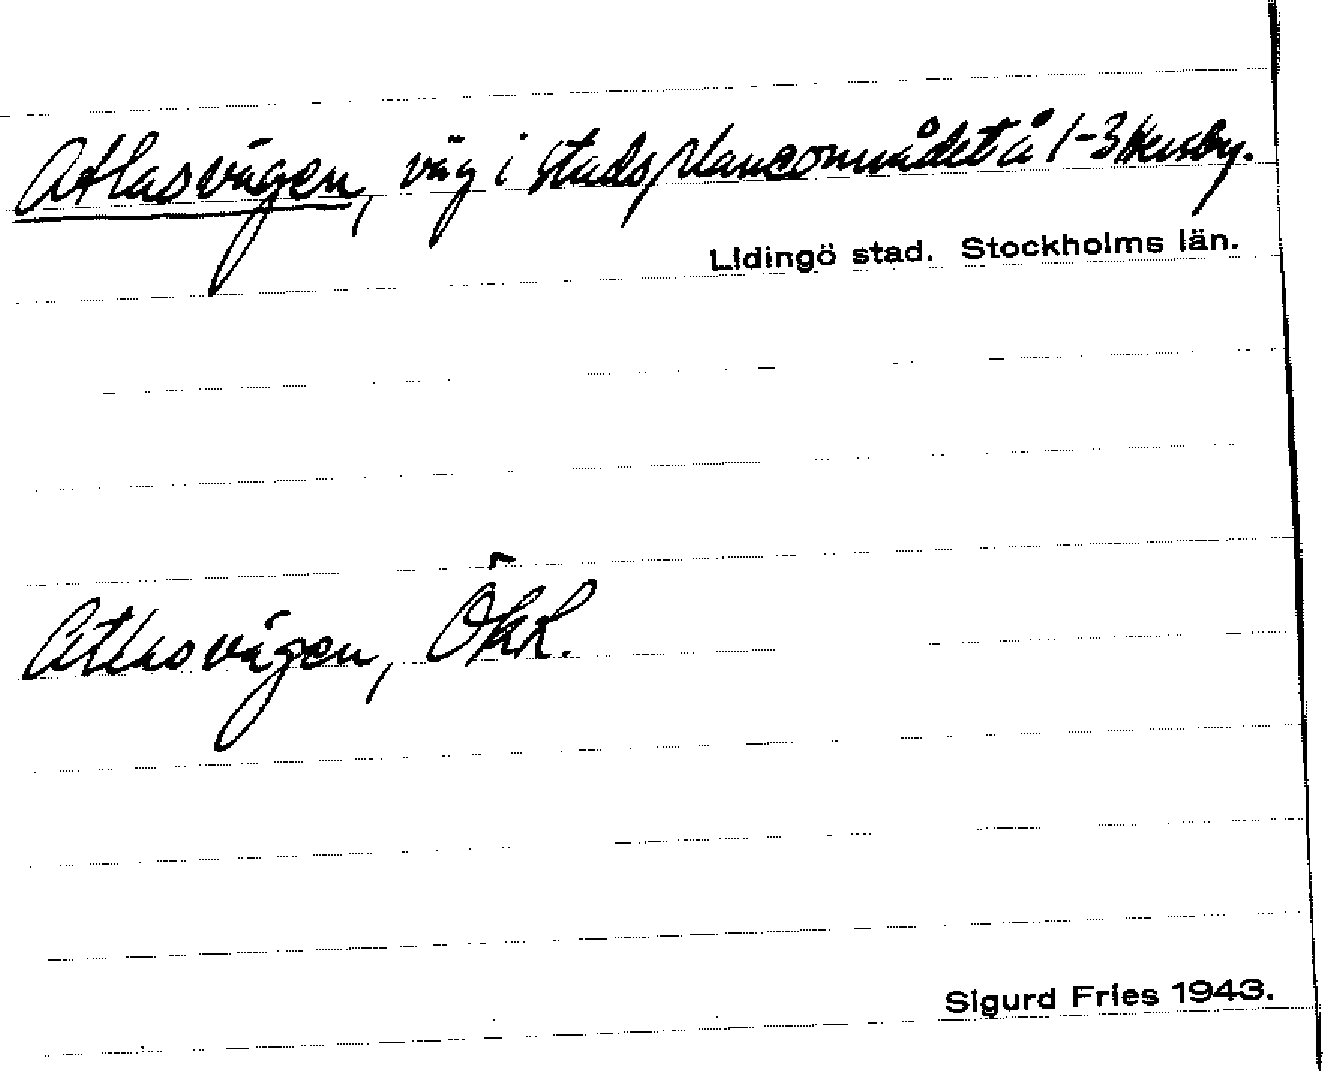 Atlasvägen, väg i stadsplaneområdet å 1-3 Hersby.
Lidingö stad. Stockholms län.
Atlasvägen, ÖkR.
Sigurd Fries 1943.